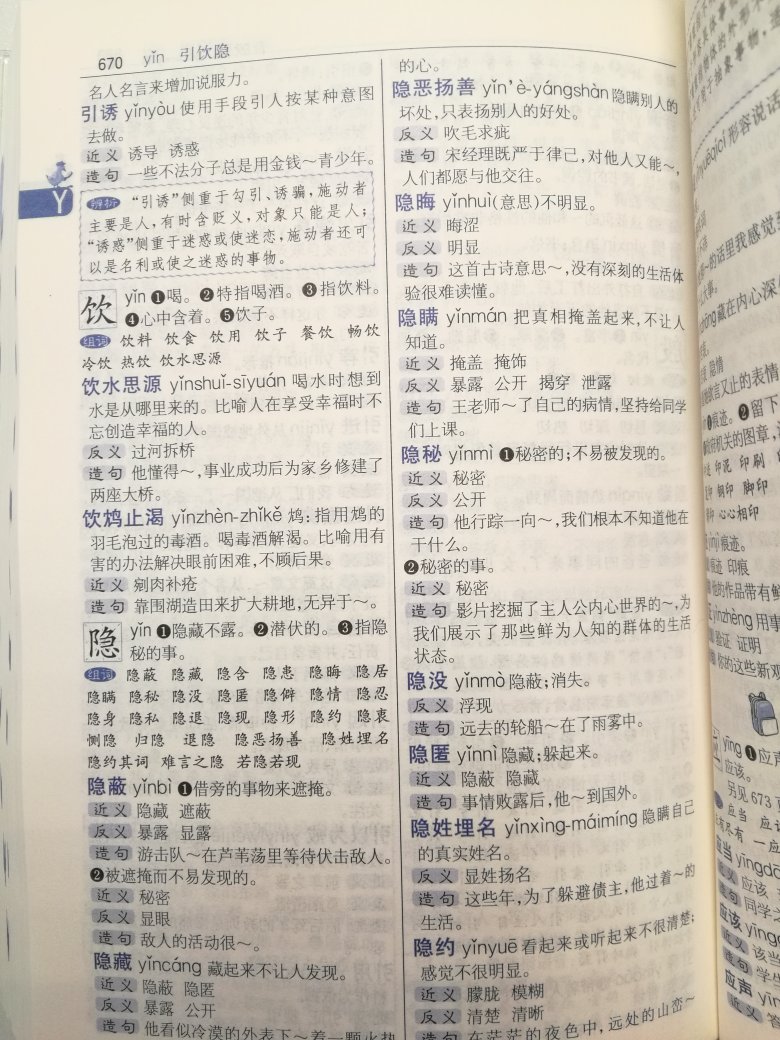 670 yǐn 引饮隐
名人名言来增加说服力。
引诱 yǐnyòu 使用手段引人按某种意图
去做。
近义 诱导 诱惑
造句 一些不法分子总是用金钱～青少年。
Y
辨析 “引诱”侧重于勾引、诱骗，施动者
主要是人，有时含贬义，对象只能是人；
“诱惑”侧重于迷惑或使迷恋，施动者还可
以是名利或使之迷惑的事物。
饮 yǐn ❶喝。❷特指喝酒。❸指饮料。
❹心中含着。❺饮子。
组词 饮料 饮食 饮用 饮子 餐饮 畅饮
冷饮 热饮 饮水思源
饮水思源 yǐnshuǐ-sīyuán 喝水时想到
水是从哪里来的。比喻人在享受幸福时不
忘创造幸福的人。
反义 过河拆桥
造句 他懂得～，事业成功后为家乡修建了
两座大桥。
饮鸩止渴 yǐnzhèn-zhǐkě 鸩：指用鸩的
羽毛泡过的毒酒。喝毒酒解渴。比喻用有
害的办法解决眼前困难，不顾后果。
近义 剜肉补疮
造句 靠围湖造田来扩大耕地，无异于～。
隐 yǐn ❶隐藏不露。❷潜伏的。❸指隐
秘的事。
组词 隐蔽 隐藏 隐含 隐患 隐晦 隐居
隐瞒 隐秘 隐没 隐匿 隐僻 隐情 隐忍
隐身 隐私 隐退 隐现 隐形 隐约 隐衷
恻隐 归隐 退隐 隐恶扬善 隐姓埋名
隐约其词 难言之隐 若隐若现
隐蔽 yǐnbì ❶借旁的事物来遮掩。
近义 隐藏 遮蔽
反义 暴露 显露
造句 游击队～在芦苇荡里等待伏击敌人。
❷被遮掩而不易发现的。
近义 秘密
反义 显眼
造句 敌人的活动很～。
隐藏 yǐncáng 藏起来不让人发现。
近义 隐蔽 隐匿
反义 暴露 公开
造句 他看似冷漠的外表下～着一颗火热
的心。
隐恶扬善 yǐn'è-yángshàn 隐瞒别人的
坏处，只表扬别人的好处。
反义 吹毛求疵
造句 宋经理既严于律己，对他人又能～，
人们都愿与他交往。
隐晦 yǐnhuì（意思）不明显。
近义 晦涩
反义 明显
造句 这首古诗意思～，没有深刻的生活体
验很难读懂。
隐瞒 yǐnmán 把真相掩盖起来，不让人
知道。
近义 掩盖 掩饰
反义 暴露 公开 揭穿 泄露
造句 王老师～了自己的病情，坚持给同学
们上课。
隐秘 yǐnmì ❶秘密的；不易被发现的。
近义 秘密
反义 公开
造句 他行踪一向～，我们根本不知道他在
干什么。
❷秘密的事。
近义 秘密
造句 影片挖掘了主人公内心世界的～，为
我们展示了那些鲜为人知的群体的生活
状态。
隐没 yǐnmò 隐蔽；消失。
反义 浮现
造句 远去的轮船～在了雨雾中。
隐匿 yǐnnì 隐藏；躲起来。
近义 隐蔽 隐藏
造句 事情败露后，他～到国外。
隐姓埋名 yǐnxìng-máimíng 隐瞒自己
的真实姓名。
反义 显姓扬名
造句 这些年，为了躲避债主，他过着～的
生活。
隐约 yǐnyuē 看起来或听起来不很清楚；
感觉不很明显。
近义 朦胧 模糊
反义 清楚 清晰
造句 在茫茫的夜色中，远处的山峦～
形容说话
的话里我感觉
藏在内心深
隐情
欲言又止的表情
痕迹。❷留下
机关的图章，
印泥 印刷
钢印 脚印
心心相印
痕迹。
痕迹 印痕
他的作品带有鲜
yìnzhèng 用事
验证 证明
你的这些新观
yīng ❶应声
应该。
另见 673
应当
一应
应当 yīngdā
应该
同学
应该 yīng
该当
学生
应声 yīn
近义 答